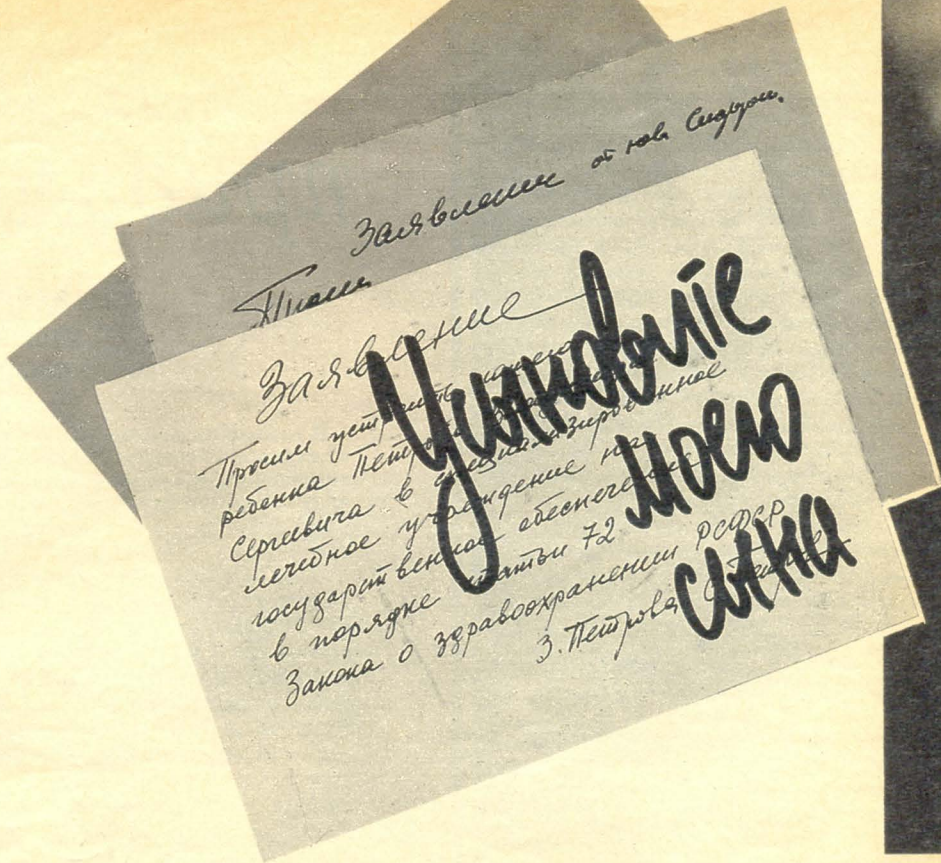 Заявление от
Заявление
Просим устроить нашего
ребенка Петрова
Сергеевича в специализированное
лечебное учреждение на
государственное обеспечение
в порядке статьи 72
Закона о здравоохранении РСФСР
З. Петрова
Усыновите
моего
сына